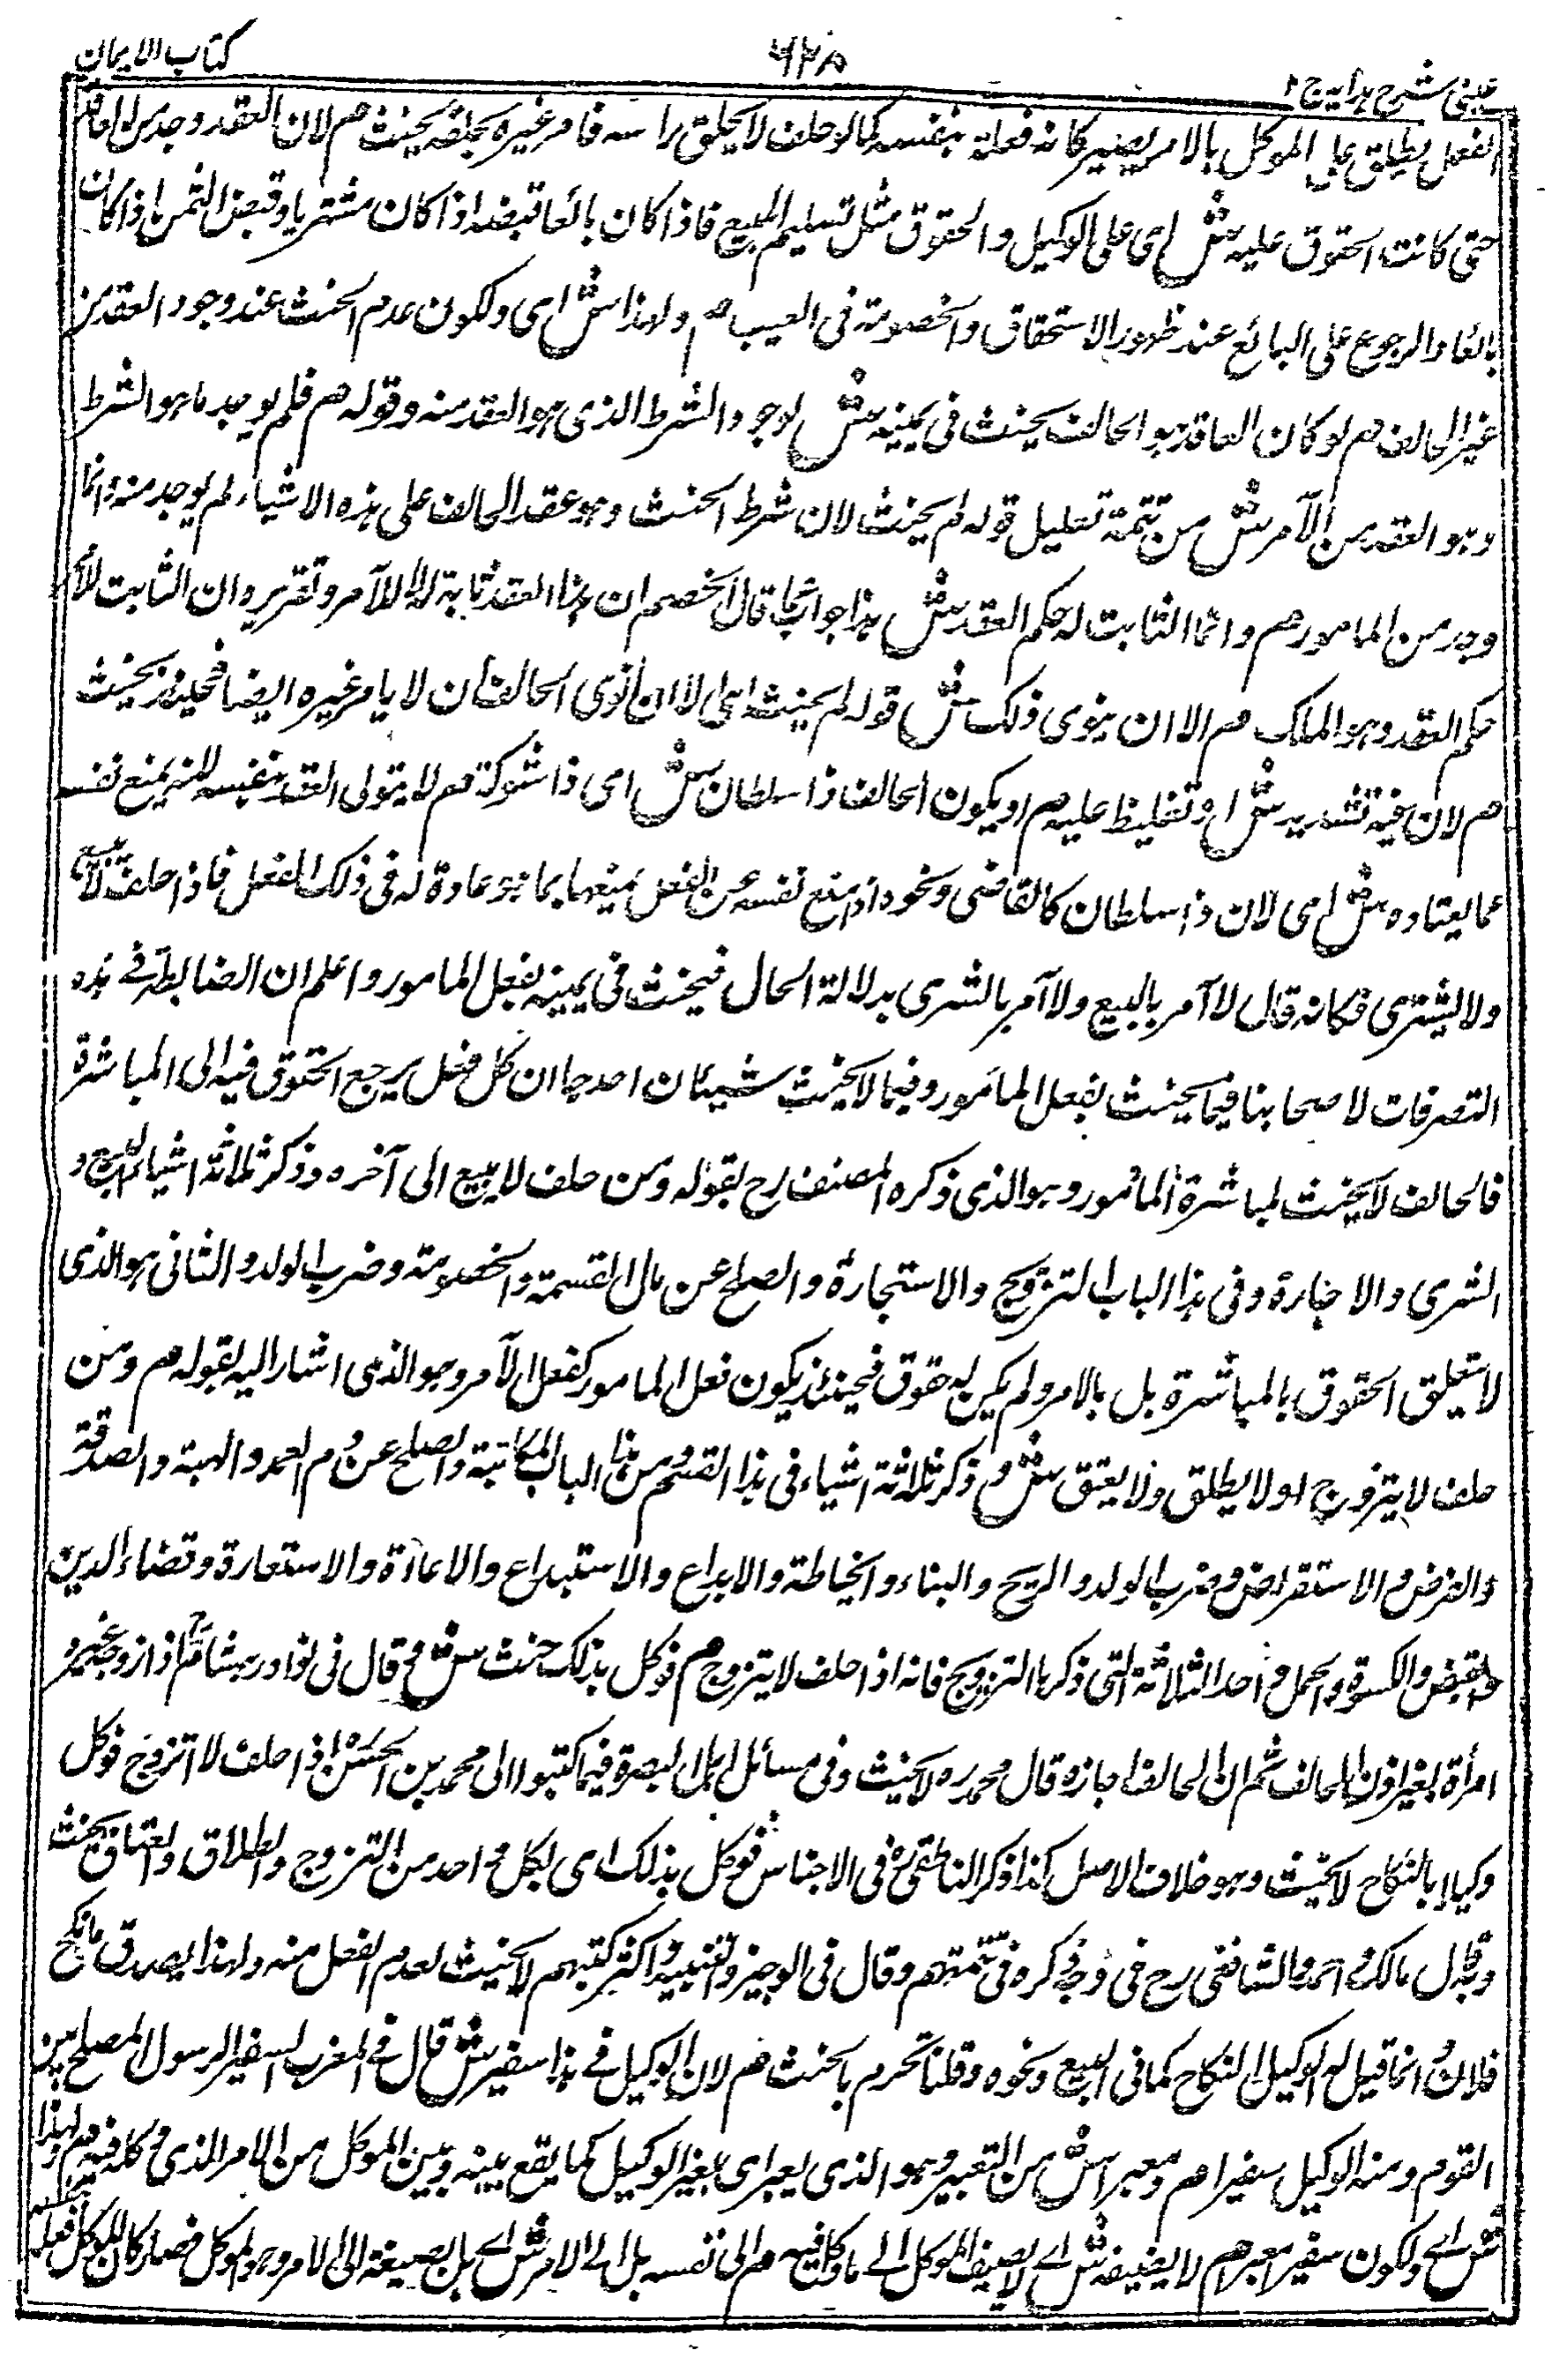 كتاب الايمان
٦٢٨
عينى شرح هدايه ج ٢
الفعل يطلق على الموكل بالامر يصير كانه فعله بنفسه كما لو حلف لا يحلق راسه فامر غيره بحلقه يحنث م لان العقد وجد من العاقد
حتى كانت الحقوق عليه ش اى على الوكيل والحقوق مثل تسليم المبيع فاذا كان بائعا قبضه اذا كان مشتريا وقبض الثمن اذا كان
بائعا والرجوع على البائع عند ظهور الاستحقاق والخصومة فى العيب م ولهذا ش اى ولكون عدم الحنث عند وجود العقد من
غير الحالف م لو كان العاقد هو الحالف يحنث فى يمينه ش لوجود الشرط الذى هو العقد منه وقوله م فلم يوجد ما هو الشرط
وهو العقد من الآمر ش من تتمة تعليل قوله لم يحنث لان شرط الحنث وهو عقد الحالف على هذه الاشياء لم يوجد منه وانما
وجد من المامور م وانما الثابت له حكم العقد ش هذا جواب عما قال الخصم ان هذا العقد ثابة للآمر وتقريره ان الثابت للآمر
حكم العقد وهو الملك م الا ان ينوى ذلك ش قوله لم يحنث اى الا ان نوى الحالف ان لا يامر غيره ايضا فحينئذ يحنث
م لان فيه تشديد ش او تغليظ عليه م او يكون الحالف ذا سلطان ش اى ذا شوكة م لا يتولى العقد بنفسه لانه يمنع نفسه
عما يعتاده ش اى لان ذا سلطان كالقاضى ونحوه اذا منع نفسه عن الفعل يمنعها بما هو عادة له فى ذلك الفعل فاذا حلف لا يبيع
ولا يشترى فكانه قال لا آمر بالبيع ولا آمر بالشرى بدلالة الحال فيحنث فى يمينه بفعل المامور واعلم ان الضابطة فى هذه
التصرفات لاصحابنا فيما يحنث بفعل المامور وفيما لا يحنث شيئان احدهما ان كل فعل يرجع الحقوق فيه الى المباشرة
فالحالف لا يحنث لمباشرة المامور وهو الذى ذكره المصنف رح بقوله ومن حلف لا يبيع الى آخره وذكر ثلاثة اشياء البيع و
الشرى والاجارة وفى هذا الباب التزويج والاستجارة والصلح عن مال القسمة والخصومة وضرب الولد والثانى هو الذى
لا يتعلق الحقوق بالمباشرة بل بالامر ولم يكن له حقوق فحينئذ يكون فعل المامور كفعل الآمر وهو الذى اشار اليه بقوله م ومن
حلف لا يتزوج او لا يطلق ولا يعتق ش وذكر ثلاثة اشياء فى هذا القسم ومن هذا الباب المكاتبة والصلح عن دم العمد والهبة والصدقة
والقرض والاستقراض وضرب الولد والذبح والبناء والخياطة والايداع والاستيداع والاعارة والاستعارة وقضاء الدين
والقبض والكسوة والحمل واحد الثلاثة التى ذكرها التزويج فانه اذا حلف لا يتزوج م فوكل بذلك حنث ش قال فى نوادر هشام اذا زوجه غيره
امرأة بغير اذن الحالف ثم ان الحالف اجازه قال محمد ره لا يحنث وفى مسائل اهل البصرة فيما كتبوا الى محمد بن الحسن اذا حلف لا اتزوج فوكل
وكيلا بالنكاح لا يحنث وهو خلاف الاصل كذا ذكر الناطفى ره فى الاجناس فوكل بذلك اى لكل واحد من التزوج والطلاق والعتاق يحنث
وبه قال مالك واحمد والشافعى رح فى وجه ذكره فى تتمتهم وقال فى الوجيز والتنبيه واكثر كتبهم لا يحنث لعدم الفعل منه ولهذا يصدق ما نكح
فلان وانما قيل الوكيل النكاح كما فى البيع ونحوه وقلنا تحرم بالحنث م لان الوكيل فى هذا سفير ش قال فى المغرب السفير الرسول المصلح بين
القوم ومنه الوكيل سفير م ومعبر ش من التعبير وهو الذى يعبر اى بغير الوكيل كما يقع بينه وبين الموكل من الامر الذى وكله فيه م ولهذا
ش اى ولكون سفير معبر م لا يضيفه ش اى لا يضيف الموكل الى ما وكل فيه م الى نفسه بل الى الآمر ش اى بل يضيفه الى الآمر وهو الموكل فصار كان الموكل فعله بنفسه